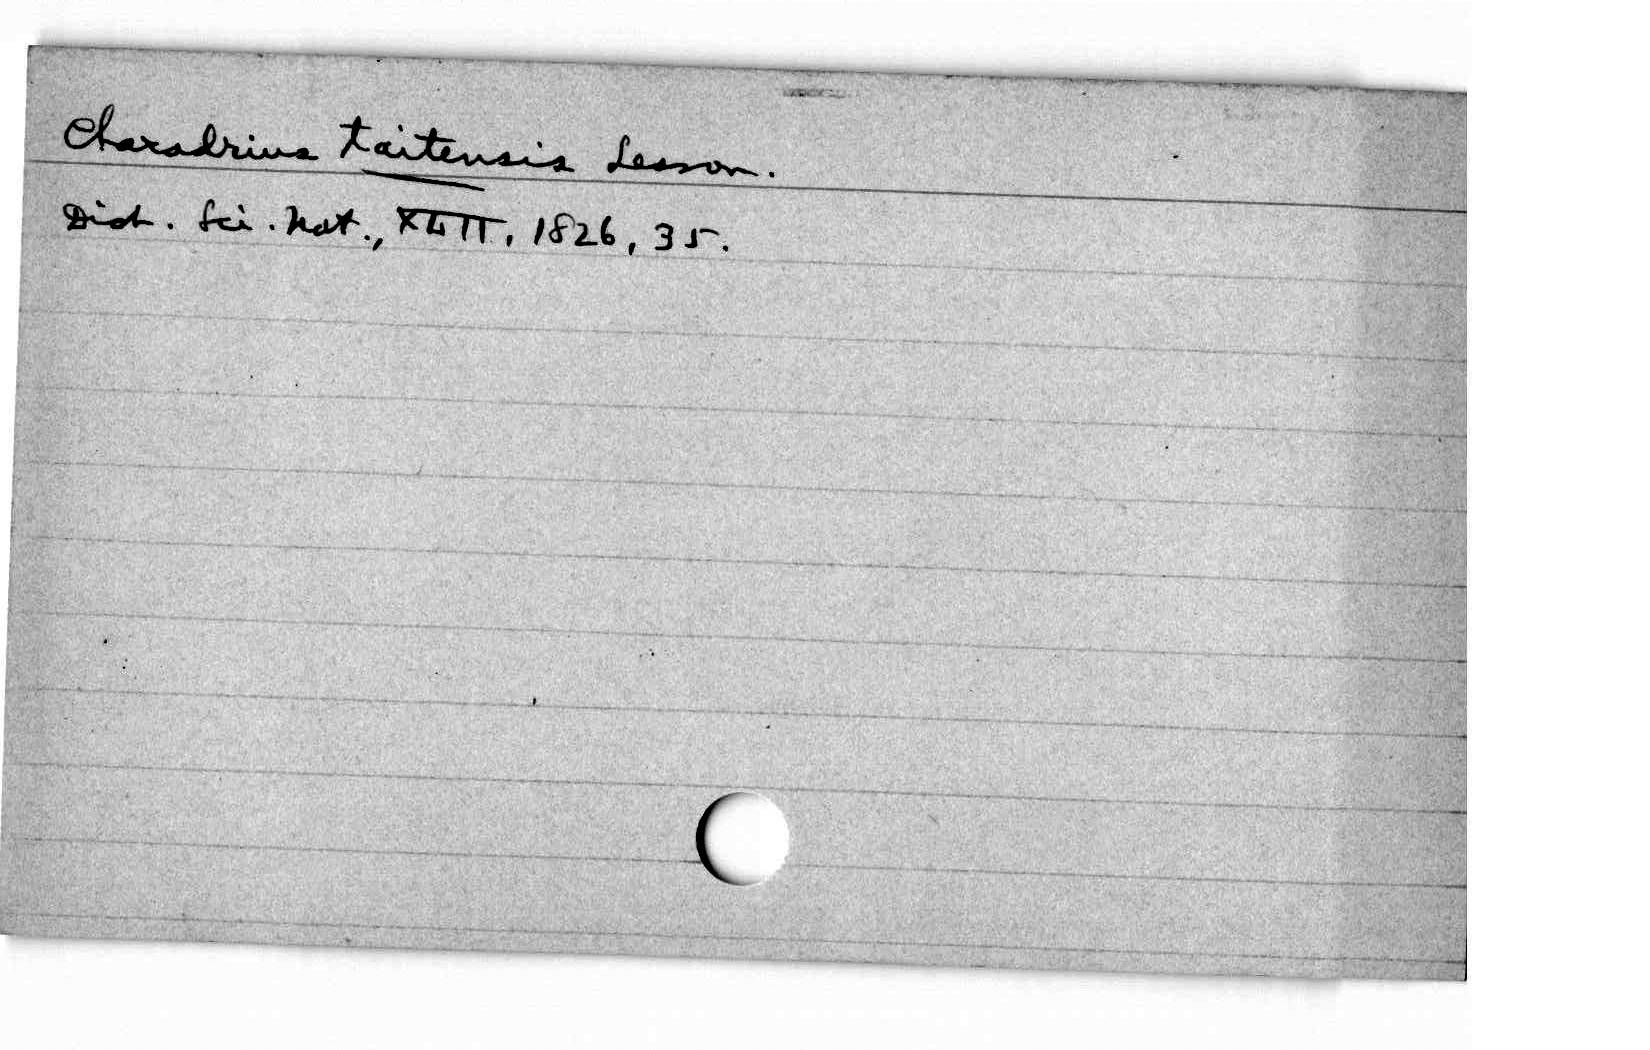 Charadrius taitensis Lesson.
Dict. Sci. Nat., XLII, 1826, 35.